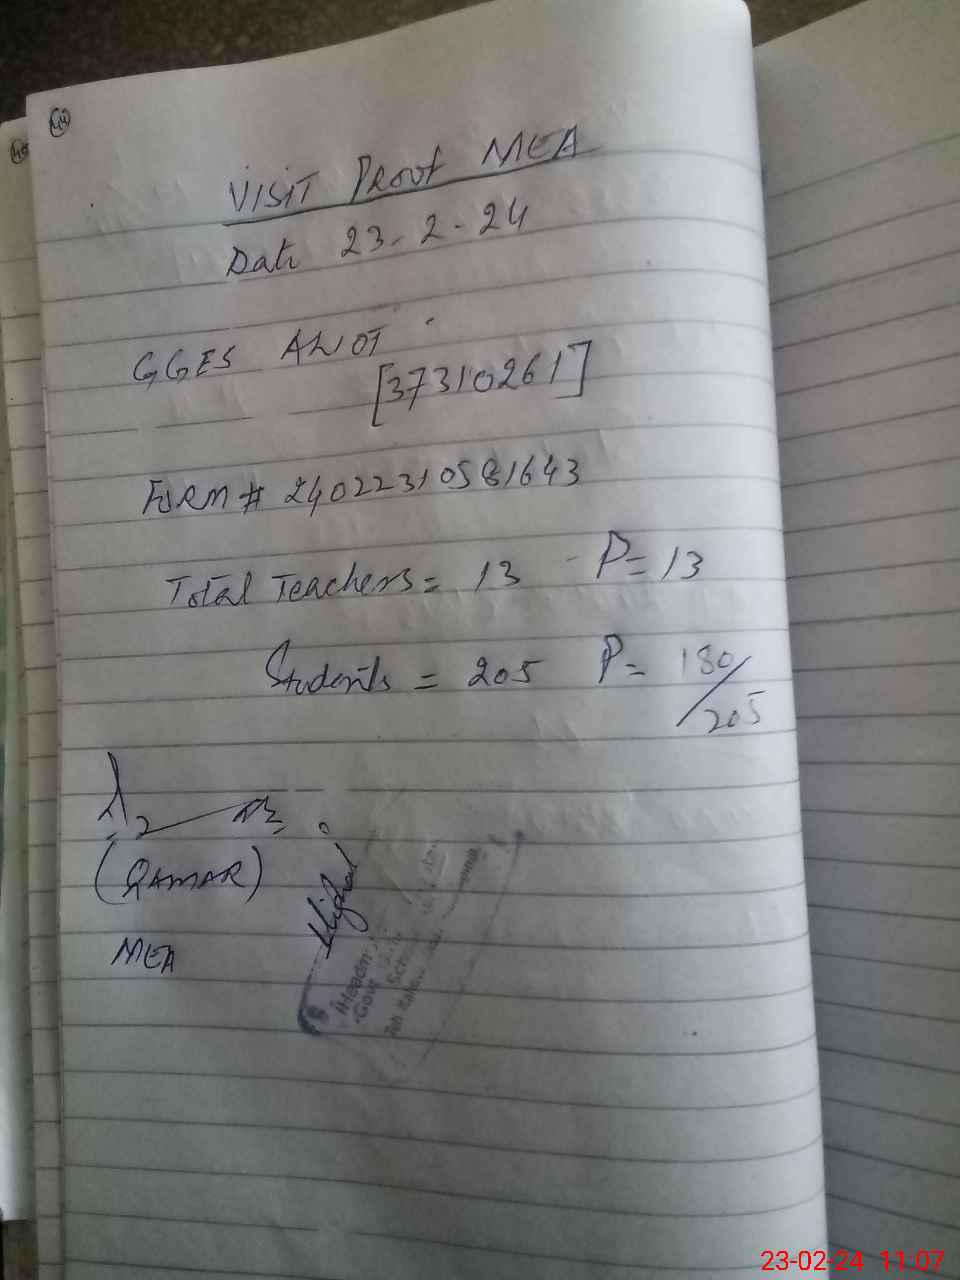 44
VISIT Proof MEA
Date 23-2-24
GGES ANOT
[37310261]
FORM # 24022310581643
Total Teachers = 13 - P= 13
Students = 205 P= 180/205
(QAMAR)
MEA
Govt
23-02-24 11:07